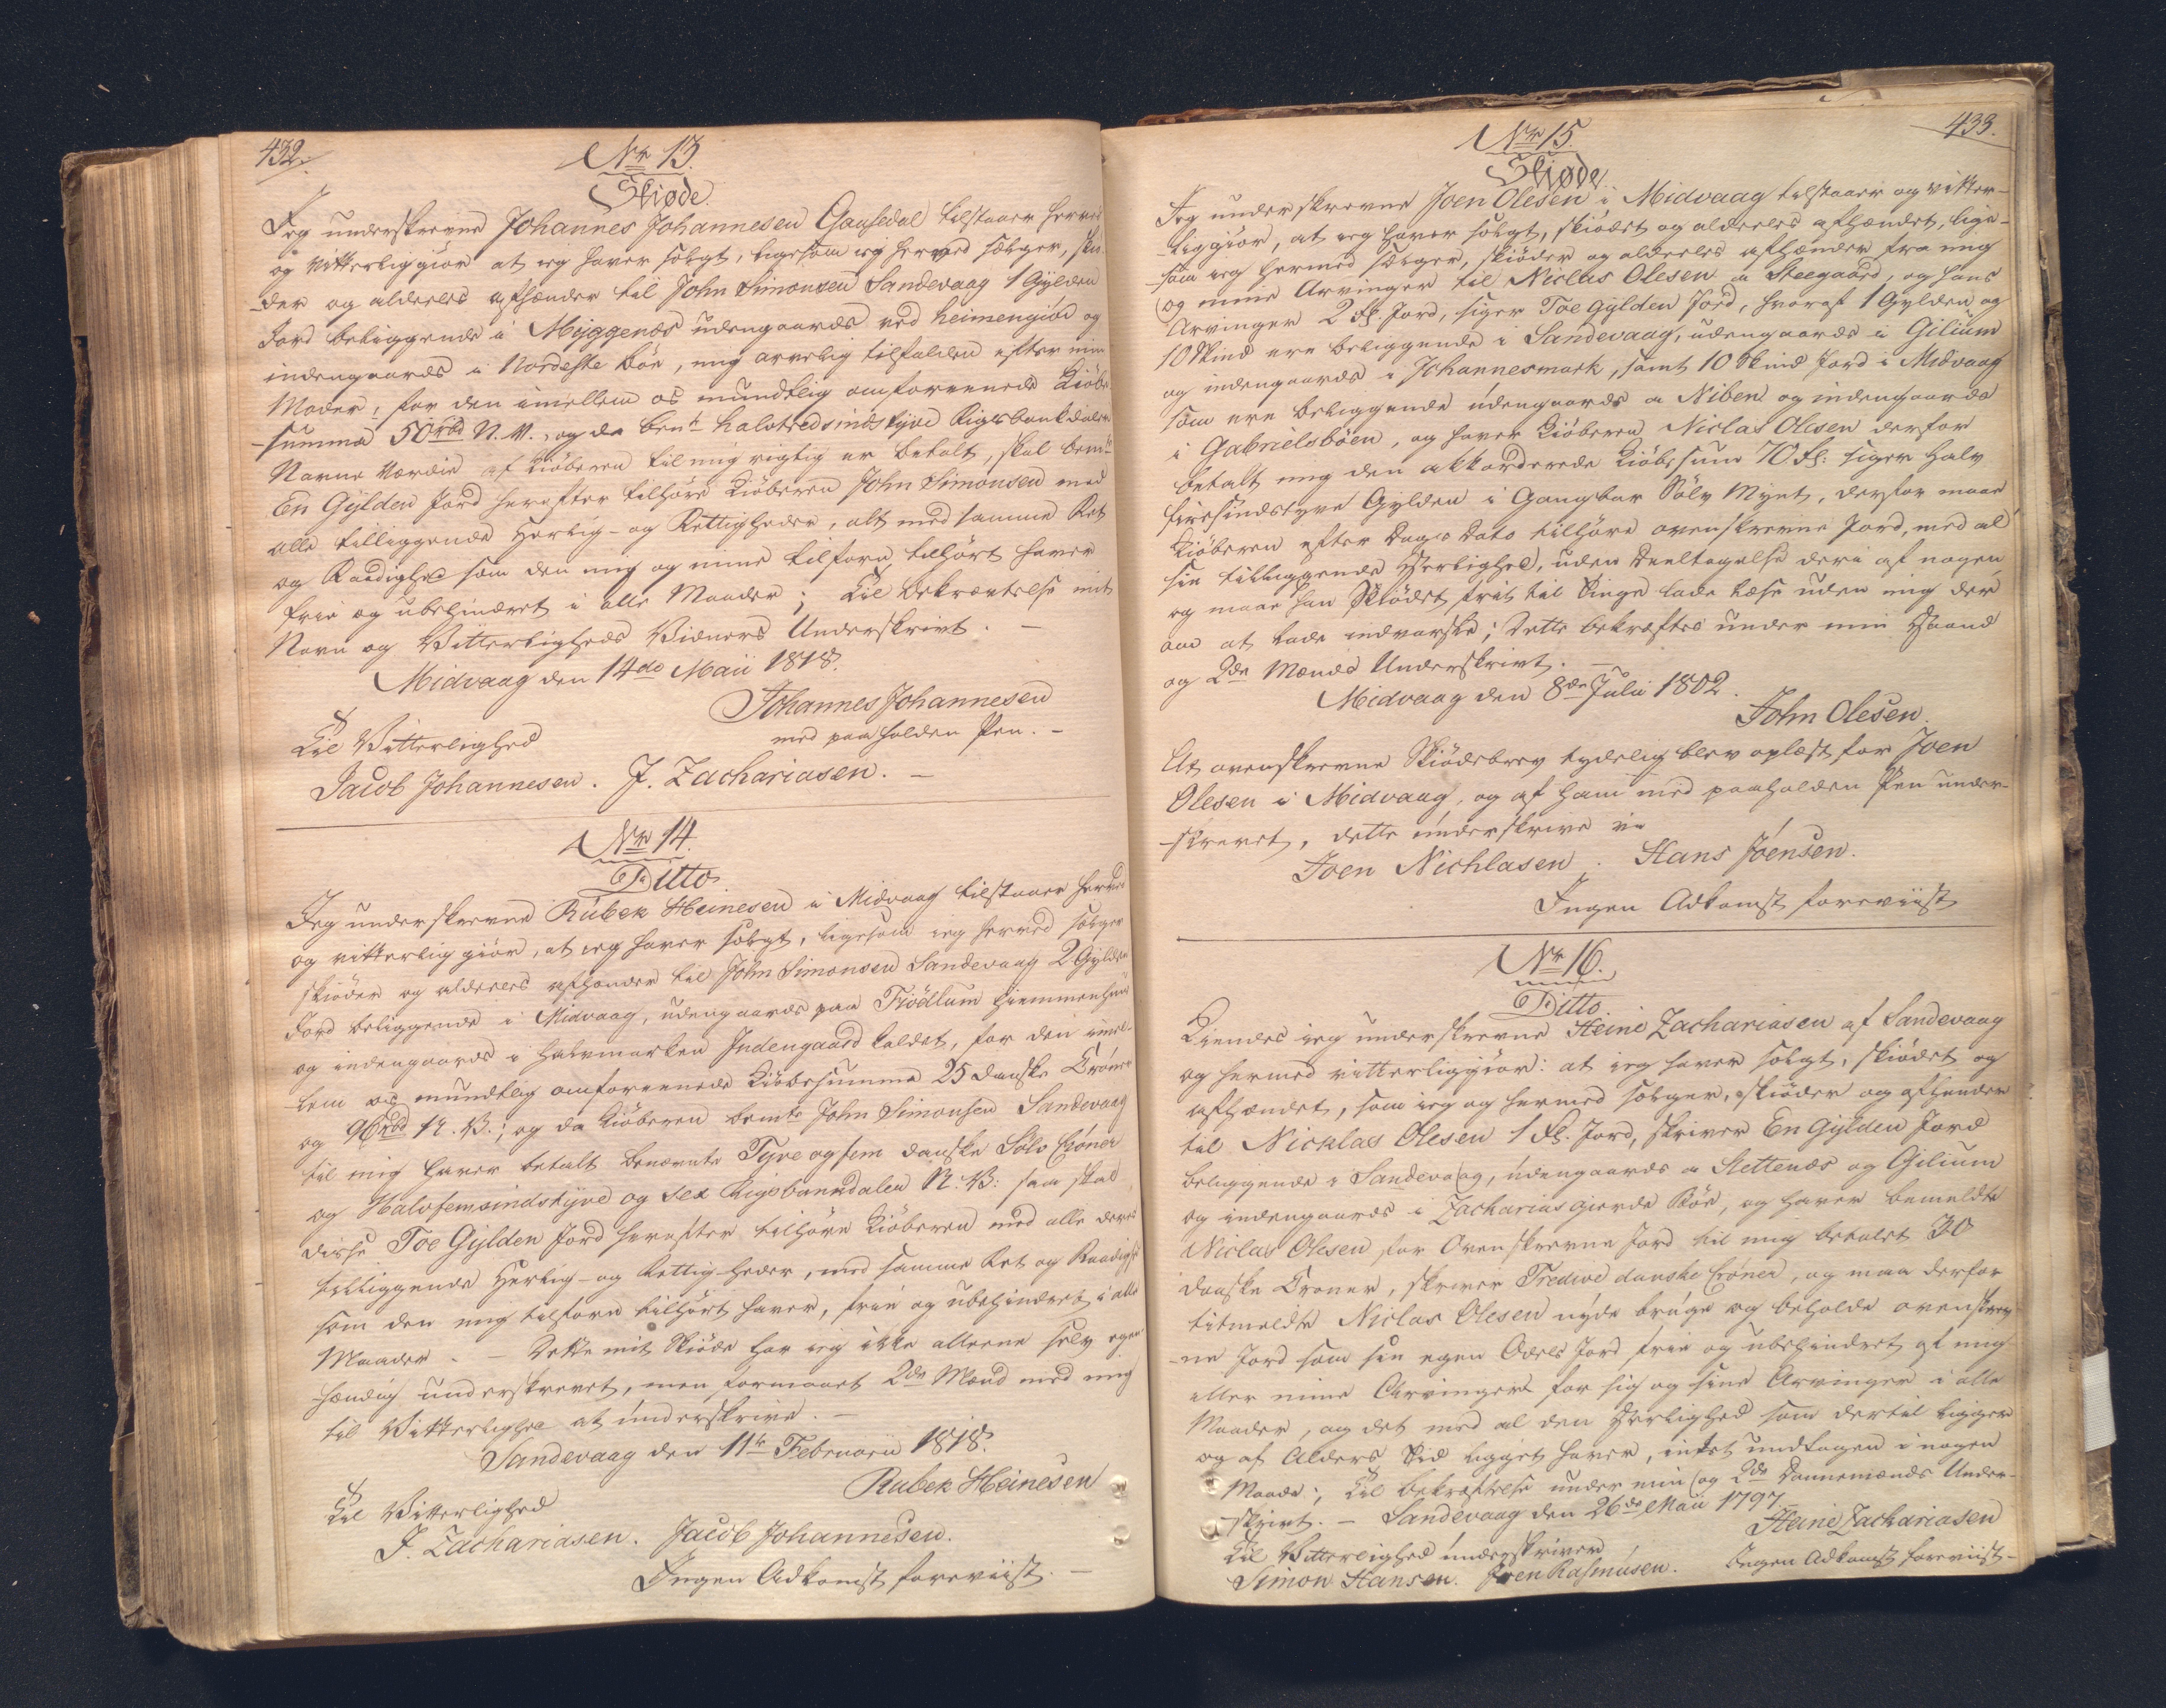 432.
Nr 13.
Skiøde.
Jeg underskrevne Johannes Johannesen Gaasedal tilstaaer herved
og vitterliggiør at jeg haver solgt, ligesom jeg herved sælger, skiø-
-der og aldeeles afhænder til John Simonsen Sandevaag 1 Gylden
Jord beliggende i Myggenæs udengaards ved heimengiød og
indengaards i Nordeste böe, mig arvelig tilfalden efter min
Moder, for den imellem os mundtlig omforeenede Kiöbe
-summa 50 rbd N.V., og da bemte halvtredsindstyve Rigsbankdaler
Navne Værdie af Kiöberen til mig rigtig er betalt, skal bemte
En Gylden Jord herefter tilhøre Kiöberen John Simonsen med
alle tilliggende Herlig- og Rettigheder, alt med samme Ret
og Raadighed som den mig og mine tilforn tilhørt haver
frie og ubehindret i alle Maader; Til Bekræftelse mit
Navn og Vitterligheds Vidners Underskrivt. –
Midvaag den 14de Maii 1818.
Johannes Johannesen
med paaholden Pen. –
Til Vitterlighed
Jacob Johannesen. J. Zachariasen. –
Nr 14.
Ditto.
Jeg underskrevne Rubek Heinesen i Midvaag tilstaaer herved
og vitterliggiør, at jeg haver solgt, ligesom jeg herved sælger
skiøder og aldeeles afhænder til John Simonsen Sandevaag 2 Gylden
Jord beliggende i Midvaag, udengaards paa Trödlum
og indengaards i halvmarken Indengaard kaldet, for den imel-
-lem os mundtlig omforeenede Kiöbesumma 25 danske Cröner
og 96 rbd N.V.; og da Kiöberen bemte John Simonsen Sandevaag
til mig haver betalt benævnte Tyve og fem danske Sölv Cröner
og Halvfemsindstyve og sex Rigsbankdaler N.V: saa skal
disse Toe Gylden Jord herefter tilhöre Kiöberen med alle deres
tilliggende Herlig- og Rettig-heder, med samme Ret og Raadighed
som den mig tilforn tilhört haver, frie og ubehindret i alle
Maader. – Dette mit Skiöde har jeg ikke alleene selv egen-
-hændig underskrevet, men formaaet 2de Mænd med mig
til Vitterlighed at underskrive. –
Sandevaag den 11te Februarii 1818.
Rubek Heinesen
Til Vitterlighed
J. Zachariasen. Jacob Johannesen.
Ingen Adkomst foreviist. –
433.
Nr 15.
Skiøde.
Jeg underskrevne Joen Olesen i Midvaag tilstaaer og vitter-
-liggiör, at jeg haver solgt, skiödet og aldeeles afhændet, lige-
-som jeg hermed sælger, skiöder og aldeeles afhænder fra mig
og mine Arvinger til Niclas Olesen a Steegaard, og hans
Arvinger 2 fl. Jord, siger Toe Gylden Jord, hvoraf 1 Gylden og
10 Skind ere beliggende i Sandevaag, udengaards i Gilium
og indengaards i Johannesmark, samt 10 Skind Jord i Midvaag
som ere beliggende udengaards a Niben og indengaards
i Gabrielsböen, og haver Kiöberen Niclas Olesen derfor
betalt mig den akkorderede Kiöbesum 70 fl: siger Halv
firesindstyve Gylden i Gangbar Sölv Mynt, derfor maae
Kiöberen efter Dags Dato tilhöre ovenskrevne Jord, med al
sin tilliggende Herlighed, uden Deeltagelse deri af nogen
og maae han Skiödet frit til Tinge lade læse uden mig der
om at lade indvarsle; Dette bekræftes under min Haand
og 2de Mænds Underskrivt. –
Midvaag den 8de Julii 1802.
John Olesen.
At ovenskrevne Skiödebrev tydelig blev oplæst for Joen
Olesen i Midvaag, og af ham med paaholden Pen under-
-skrevet, dette underskrive vi
Joen Nichlasen. Hans Jóensen.
Ingen Adkomst foreviist
Nr 16.
Ditto.
Kiendes jeg underskrevne Heine Zachariasen af Sandevaag
og hermed vitterliggiör: at jeg haver solgt, skiödet og
afhændet, som jeg og hermed sælger, skiöder og afhænder
til Nicklas Olesen 1 fl. Jord, skriver En Gylden Jord
beliggende i Sandevaag, udengaards a Slettenæs og Gilium
og indengaards i Zacharias gierde Böe, og haver bemeldte
Niclas Olesen for Ovenskrevne Jord til mig betalet 30
danske Croner, skriver Tredive danske Cröner, og maa derfor
titmeldte Niclas Olesen nyde bruge og beholde ovenskrev-
-ne Jord som sin egen Odels Jord frie og ubehindret af mig
eller mine Arvinger for sig og sine Arvinger i alle
Maader, og det med al den Herlighed som dertil ligger
og af Alders Tid ligget haver, intet undtagen i nogen
Maade; Til bekræftelse under min og 2de Dannemænds Under-
-skrivt. – Sandevaag den 26de Maii 1797.
Heine Zachariasen
Til Vitterlighed underskriver
Simon Hansen. Joen Rasmusen. Ingen Adkomst foreviist –